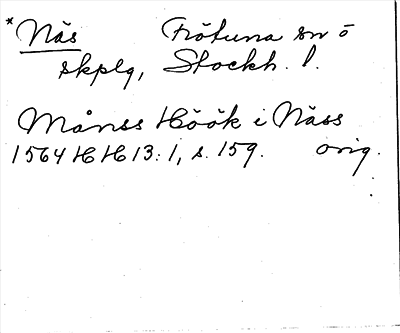 *Näs Frötuna sn o
skplg, Stockh. l.
Månss Höök i Näss
1564 HH 13:1, s. 159. orig.